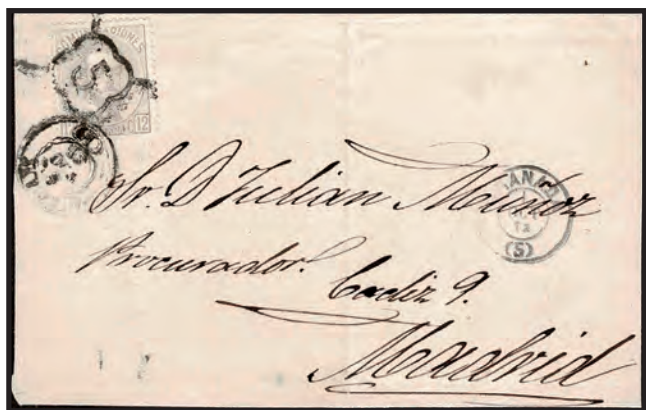 COMUNICACIONES
5
12
Sr. D. Julian Muñoz
(5)
Procurador.
Cadiz 9.
Madrid